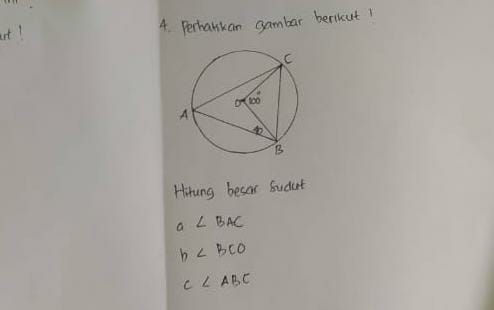 ut !
4. Perhatikan gambar berikut !
C
O 100°
A
B
Hitung besar Sudut
a ∠ BAC
b ∠ BCO
c ∠ ABC